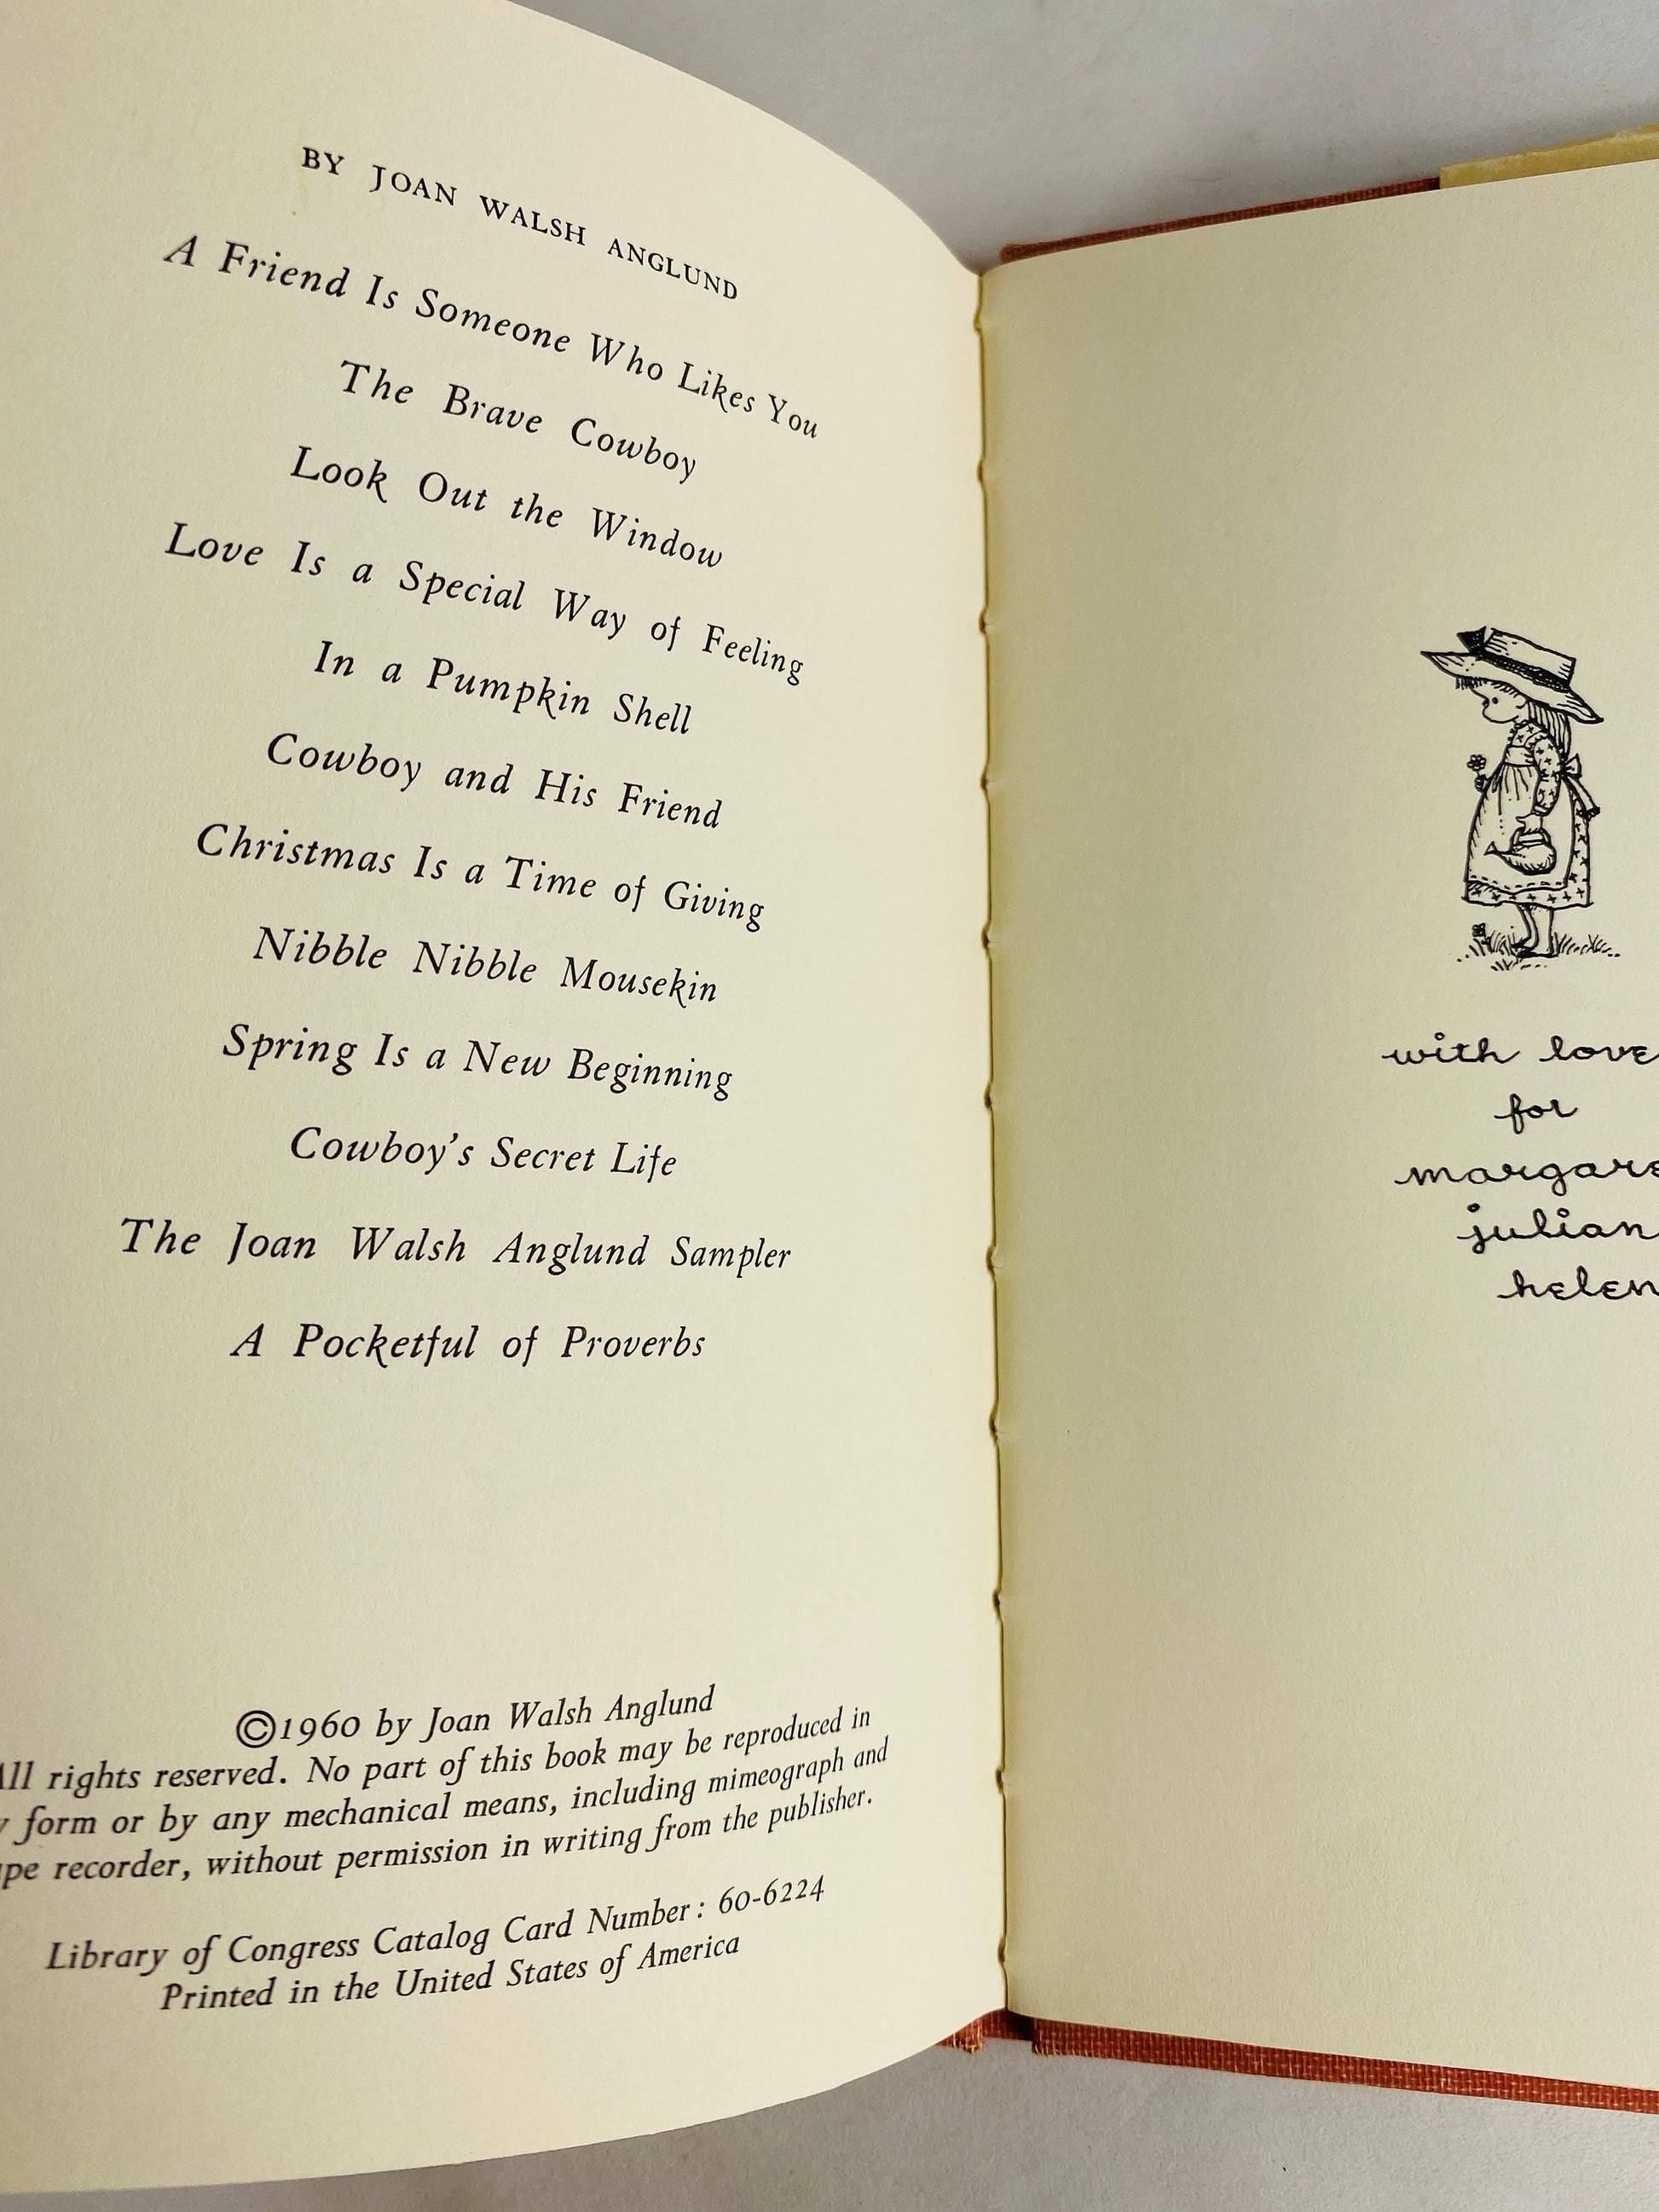 BY JOAN WALSH ANGLUND
A Friend Is Someone Who Likes You
The Brave Cowboy
Look Out the Window
Love Is a Special Way of Feeling
In a Pumpkin Shell
Cowboy and His Friend
Christmas Is a Time of Giving
Nibble Nibble Mousekin
Spring Is a New Beginning
Cowboy's Secret Life
The Joan Walsh Anglund Sampler
A Pocketful of Proverbs
©1960 by Joan Walsh Anglund
All rights reserved. No part of this book may be reproduced in
form or by any mechanical means, including mimeograph and
recorder, without permission in writing from the publisher.
Library of Congress Catalog Card Number: 60-6224
Printed in the United States of America
with love
for
julian
helen